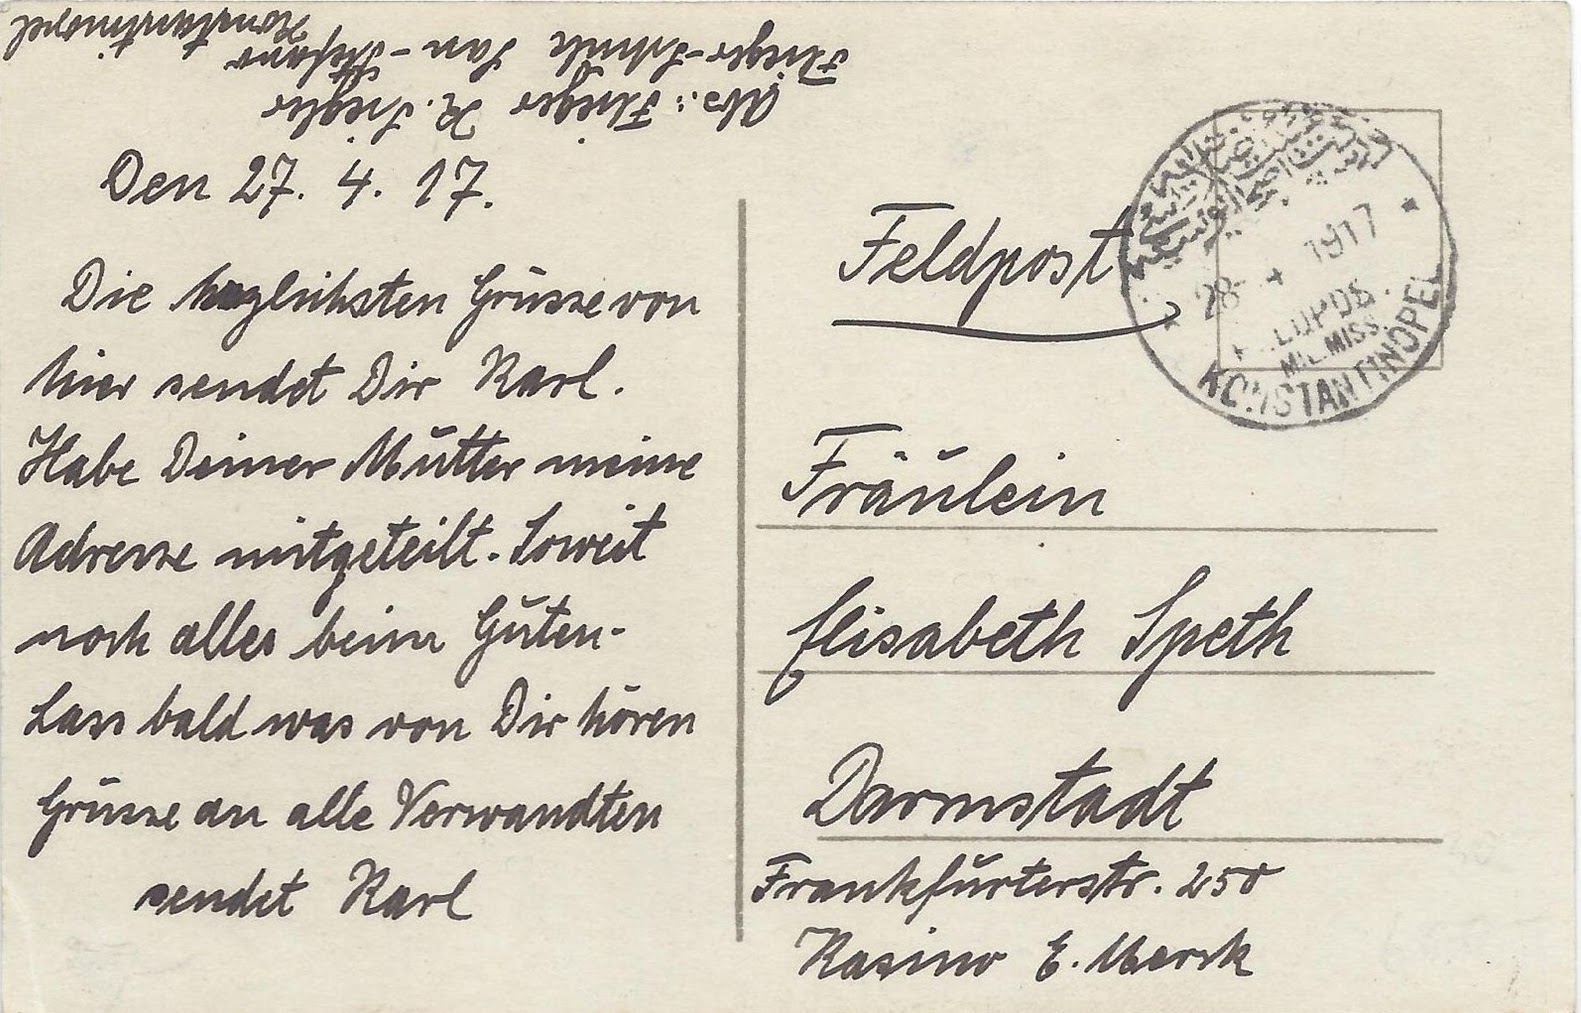 Abs.: Flieger K. Siegler
Flieger-Schule San-Stefano
Konstantinopel
Den 27. 4. 17.
Die herzlichsten Grüsse von
hier sendet Dir Karl.
Habe Deiner Mutter meine
Adresse mitgeteilt. Soweit
noch alles beim Guten.
Lass bald was von Dir hören
Grüsse an alle Verwandten
sendet Karl
Feldpost
28 4 1917
MIL. MISS.
KONSTANTINOPEL
Fräulein
Elisabeth Speth
Darmstadt
Frankfurterstr. 250
Kasino E. Merck